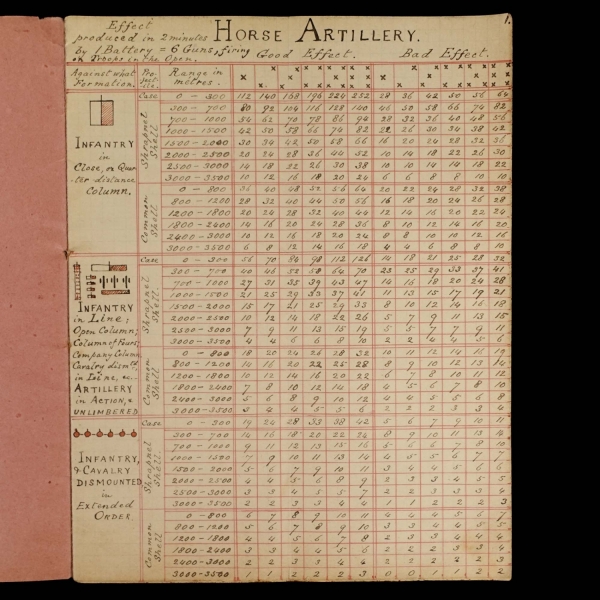 1.
Effect
produced in 2 minutes HORSE ARTILLERY.
by 1 Battery = 6 Guns, firing Good Effect. Bad Effect.
on Troops in the Open.
Against what Formation. Pro-jectile. Range in metres.
INFANTRY
in
Close, or Quar-
ter distance
Column.
Case 0 - 300 112 140 168 196 224 252 28 36 42 50 56 64
Shrapnel Shell
300 - 700 80 92 104 116 128 140 46 50 58 66 74 82
700 - 1000 54 62 70 78 86 94 28 32 36 40 48 56
1000 - 1500 42 50 58 66 74 82 22 26 30 34 38 42
1500 - 2000 30 34 42 50 58 66 16 20 24 28 32 36
2000 - 2500 20 24 28 36 44 52 10 14 18 22 26 30
2500 - 3000 14 18 22 26 30 38 10 10 14 14 18 22
3000 - 3500 10 12 16 18 20 24 6 6 8 8 10 10
Common Shell
0 - 800 36 40 48 52 56 64 20 22 24 28 32 38
800 - 1200 28 32 40 44 50 56 16 18 20 24 26 28
1200 - 1800 20 24 28 32 40 44 12 14 16 20 22 24
1800 - 2400 14 16 20 24 28 36 8 10 12 14 16 20
2400 - 3000 10 12 16 18 20 24 8 8 10 10 12 16
3000 - 3500 6 8 12 14 16 18 4 4 6 8 8 10
INFANTRY
in LINE;
Open Column;
Column of Fours;
Company Column
Cavalry dism'd.
in Line, &c.
ARTILLERY
in ACTION, &
UNLIMBERED
Case 0 - 300 56 70 84 98 112 126 14 18 21 25 28 32
Shrapnel Shell
300 - 700 40 46 52 58 64 70 23 25 29 33 37 41
700 - 1000 27 31 35 39 43 47 14 16 18 20 24 28
1000 - 1500 21 25 29 33 37 41 11 13 15 17 19 21
1500 - 2000 15 17 21 25 29 33 8 10 12 14 16 18
2000 - 2500 10 12 14 18 22 26 5 7 9 11 13 15
2500 - 3000 7 9 11 13 15 19 5 5 7 7 9 11
3000 - 3500 4 4 6 6 8 10 2 2 4 4 5 6
Common Shell
0 - 800 18 20 24 26 28 32 10 11 12 14 16 19
800 - 1200 14 16 20 22 25 28 8 9 10 12 13 14
1200 - 1800 10 12 14 16 20 22 6 7 8 10 11 12
1800 - 2400 7 8 10 12 14 18 4 5 6 7 8 10
2400 - 3000 5 6 8 9 10 12 4 4 5 5 6 8
3000 - 3500 3 4 4 5 5 6 2 2 2 3 3 4
INFANTRY,
& CAVALRY
DISMOUNTED
in
Extended
ORDER
Case 0 - 300 19 24 28 33 38 42 5 6 7 9 10 11
Shrapnel Shell
300 - 700 14 16 18 20 22 24 8 9 10 11 13 14
700 - 1000 9 11 12 13 15 16 5 6 6 7 8 10
1000 - 1500 7 9 10 11 13 14 4 5 5 6 7 7
1500 - 2000 5 6 7 9 10 11 3 4 4 5 6 6
2000 - 2500 4 4 5 6 8 9 2 3 3 4 5 5
2500 - 3000 3 3 4 5 5 7 2 2 3 3 3 4
3000 - 3500 2 2 3 3 4 4 1 1 2 2 2 3
Common Shell
0 - 800 6 7 8 9 10 11 4 4 4 5 6 7
800 - 1200 5 6 7 8 9 10 3 3 4 4 5 5
1200 - 1800 4 4 5 6 7 8 2 3 3 4 4 4
1800 - 2400 3 3 4 4 5 6 2 2 2 3 3 4
2400 - 3000 2 2 3 3 4 4 2 2 2 2 2 3
3000 - 3500 1 1 2 2 2 3 0 0 1 1 2 2